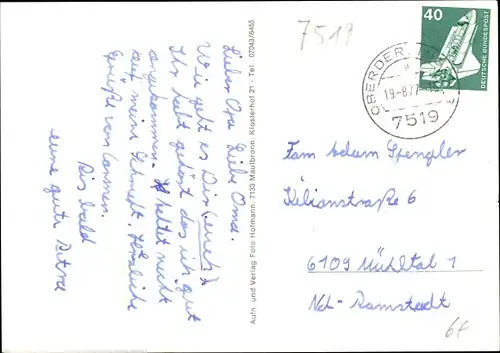 Lieber Opa Liebe Oma.
Wie geht es Dir (euch)?
Ihr habt gehört das ich gut
angekommen. Haltet nicht
auf meine Schrift. Herzliche
Grüße von Carmen.
Bis bald
eure gute
Autn. und Verlag Foto Hofmann, 7133 Maulbronn, Klosterhof 21 - Tel. 07043/6465
7519
40
DEUTSCHE BUNDESPOST
OBERDER
19.-8.77
7519
Fam Adam Spengler
Kilianstraße 6
6109 Mühltal 1
Nd-Ramstadt
6f